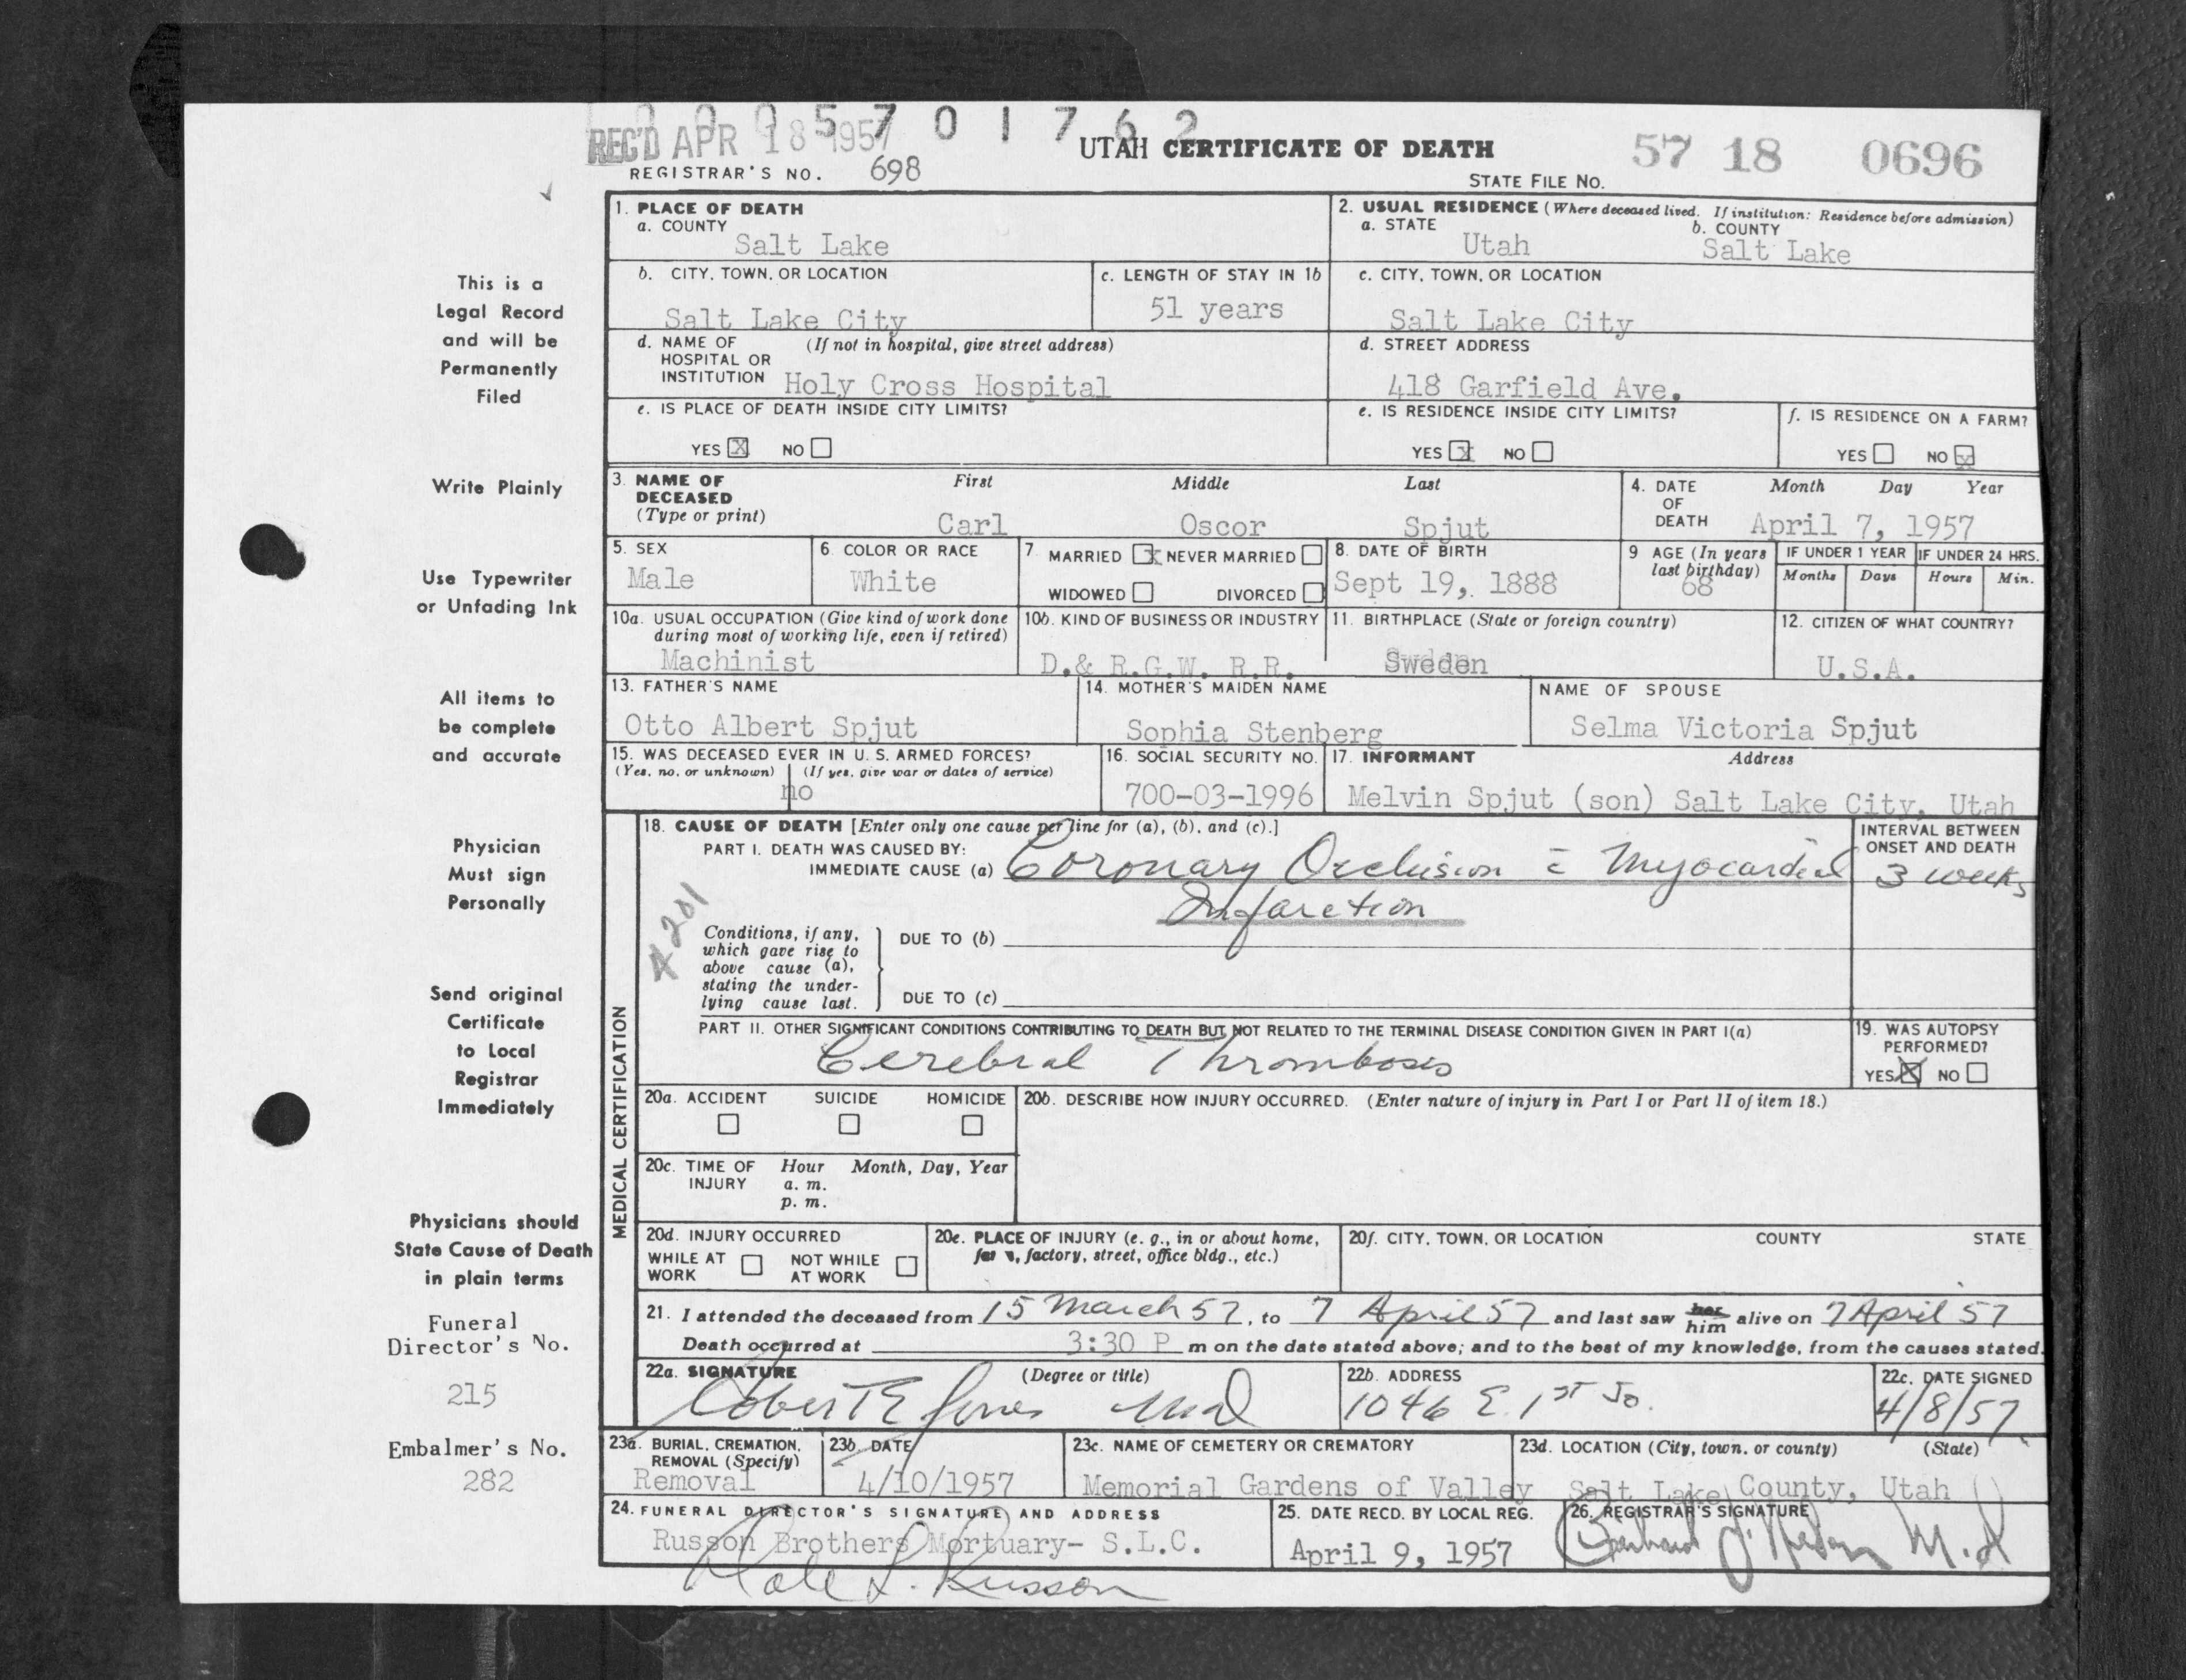 0 0 0 5 7 0 1 7 6 2
REC'D APR 18 1957
UTAH CERTIFICATE OF DEATH
57 18 0696
REGISTRAR'S NO. 698
STATE FILE NO.
This is a
Legal Record
and will be
Permanently
Filed
Write Plainly
Use Typewriter
or Unfading Ink
All items to
be complete
and accurate
Physician
Must sign
Personally
Send original
Certificate
to Local
Registrar
Immediately
Physicians should
State Cause of Death
in plain terms
Funeral
Director's No.
215
Embalmer's No.
282
1. PLACE OF DEATH
a. COUNTY
Salt Lake
2. USUAL RESIDENCE (Where deceased lived. If institution: Residence before admission)
a. STATE
Utah
b. COUNTY
Salt Lake
b. CITY, TOWN, OR LOCATION
Salt Lake City
c. LENGTH OF STAY IN 1b
51 years
c. CITY, TOWN, OR LOCATION
Salt Lake City
d. NAME OF (If not in hospital, give street address)
HOSPITAL OR
INSTITUTION Holy Cross Hospital
d. STREET ADDRESS
418 Garfield Ave.
e. IS PLACE OF DEATH INSIDE CITY LIMITS?
YES X NO
e. IS RESIDENCE INSIDE CITY LIMITS?
YES X NO
f. IS RESIDENCE ON A FARM?
YES NO X
3. NAME OF
DECEASED
(Type or print)
First Middle Last
Carl Oscor Spjut
4. DATE
OF
DEATH
Month Day Year
April 7, 1957
5. SEX
Male
6. COLOR OR RACE
White
7. MARRIED X NEVER MARRIED
WIDOWED DIVORCED
8. DATE OF BIRTH
Sept 19, 1888
9 AGE (In years
last birthday)
68
IF UNDER 1 YEAR
Months Days
IF UNDER 24 HRS.
Hours Min.
10a. USUAL OCCUPATION (Give kind of work done
during most of working life, even if retired)
Machinist
10b. KIND OF BUSINESS OR INDUSTRY
D.& R.G.W. R.R.
11. BIRTHPLACE (State or foreign country)
Sweden
12. CITIZEN OF WHAT COUNTRY?
U.S.A.
13. FATHER'S NAME
Otto Albert Spjut
14. MOTHER'S MAIDEN NAME
Sophia Stenberg
NAME OF SPOUSE
Selma Victoria Spjut
15. WAS DECEASED EVER IN U.S. ARMED FORCES?
(Yes, no, or unknown) (If yes, give war or dates of service)
no
16. SOCIAL SECURITY NO.
700-03-1996
17. INFORMANT Address
Melvin Spjut (son) Salt Lake City, Utah
MEDICAL CERTIFICATION
18. CAUSE OF DEATH [Enter only one cause per line for (a), (b), and (c).]
PART I. DEATH WAS CAUSED BY:
IMMEDIATE CAUSE (a) Coronary Occlusion c̄ Myocardial
Infarction
INTERVAL BETWEEN
ONSET AND DEATH
3 weeks
4201
Conditions, if any,
which gave rise to
above cause (a),
stating the under-
lying cause last.
DUE TO (b)
DUE TO (c)
PART II. OTHER SIGNIFICANT CONDITIONS CONTRIBUTING TO DEATH BUT NOT RELATED TO THE TERMINAL DISEASE CONDITION GIVEN IN PART I(a)
Cerebral Thrombosis
19. WAS AUTOPSY
PERFORMED?
YES X NO
20a. ACCIDENT SUICIDE HOMICIDE
20b. DESCRIBE HOW INJURY OCCURRED. (Enter nature of injury in Part I or Part II of item 18.)
20c. TIME OF Hour Month, Day, Year
INJURY a. m.
p. m.
20d. INJURY OCCURRED
WHILE AT NOT WHILE
WORK AT WORK
20e. PLACE OF INJURY (e. g., in or about home,
farm, factory, street, office bldg., etc.)
20f. CITY, TOWN, OR LOCATION COUNTY STATE
21. I attended the deceased from 15 March 57, to 7 April 57 and last saw her him alive on 7 April 57
Death occurred at 3:30 P m on the date stated above; and to the best of my knowledge, from the causes stated.
22a. SIGNATURE (Degree or title)
Robert E Jones MD
22b. ADDRESS
1046 E. 1st So.
22c. DATE SIGNED
4/8/57
23a. BURIAL, CREMATION,
REMOVAL (Specify)
Removal
23b. DATE
4/10/1957
23c. NAME OF CEMETERY OR CREMATORY
Memorial Gardens of Valley
23d. LOCATION (City, town, or county) (State)
Salt Lake County, Utah
24. FUNERAL DIRECTOR'S SIGNATURE AND ADDRESS
Russon Brothers Mortuary- S.L.C.
Dale L. Russon
25. DATE RECD. BY LOCAL REG.
April 9, 1957
26. REGISTRAR'S SIGNATURE
M.D